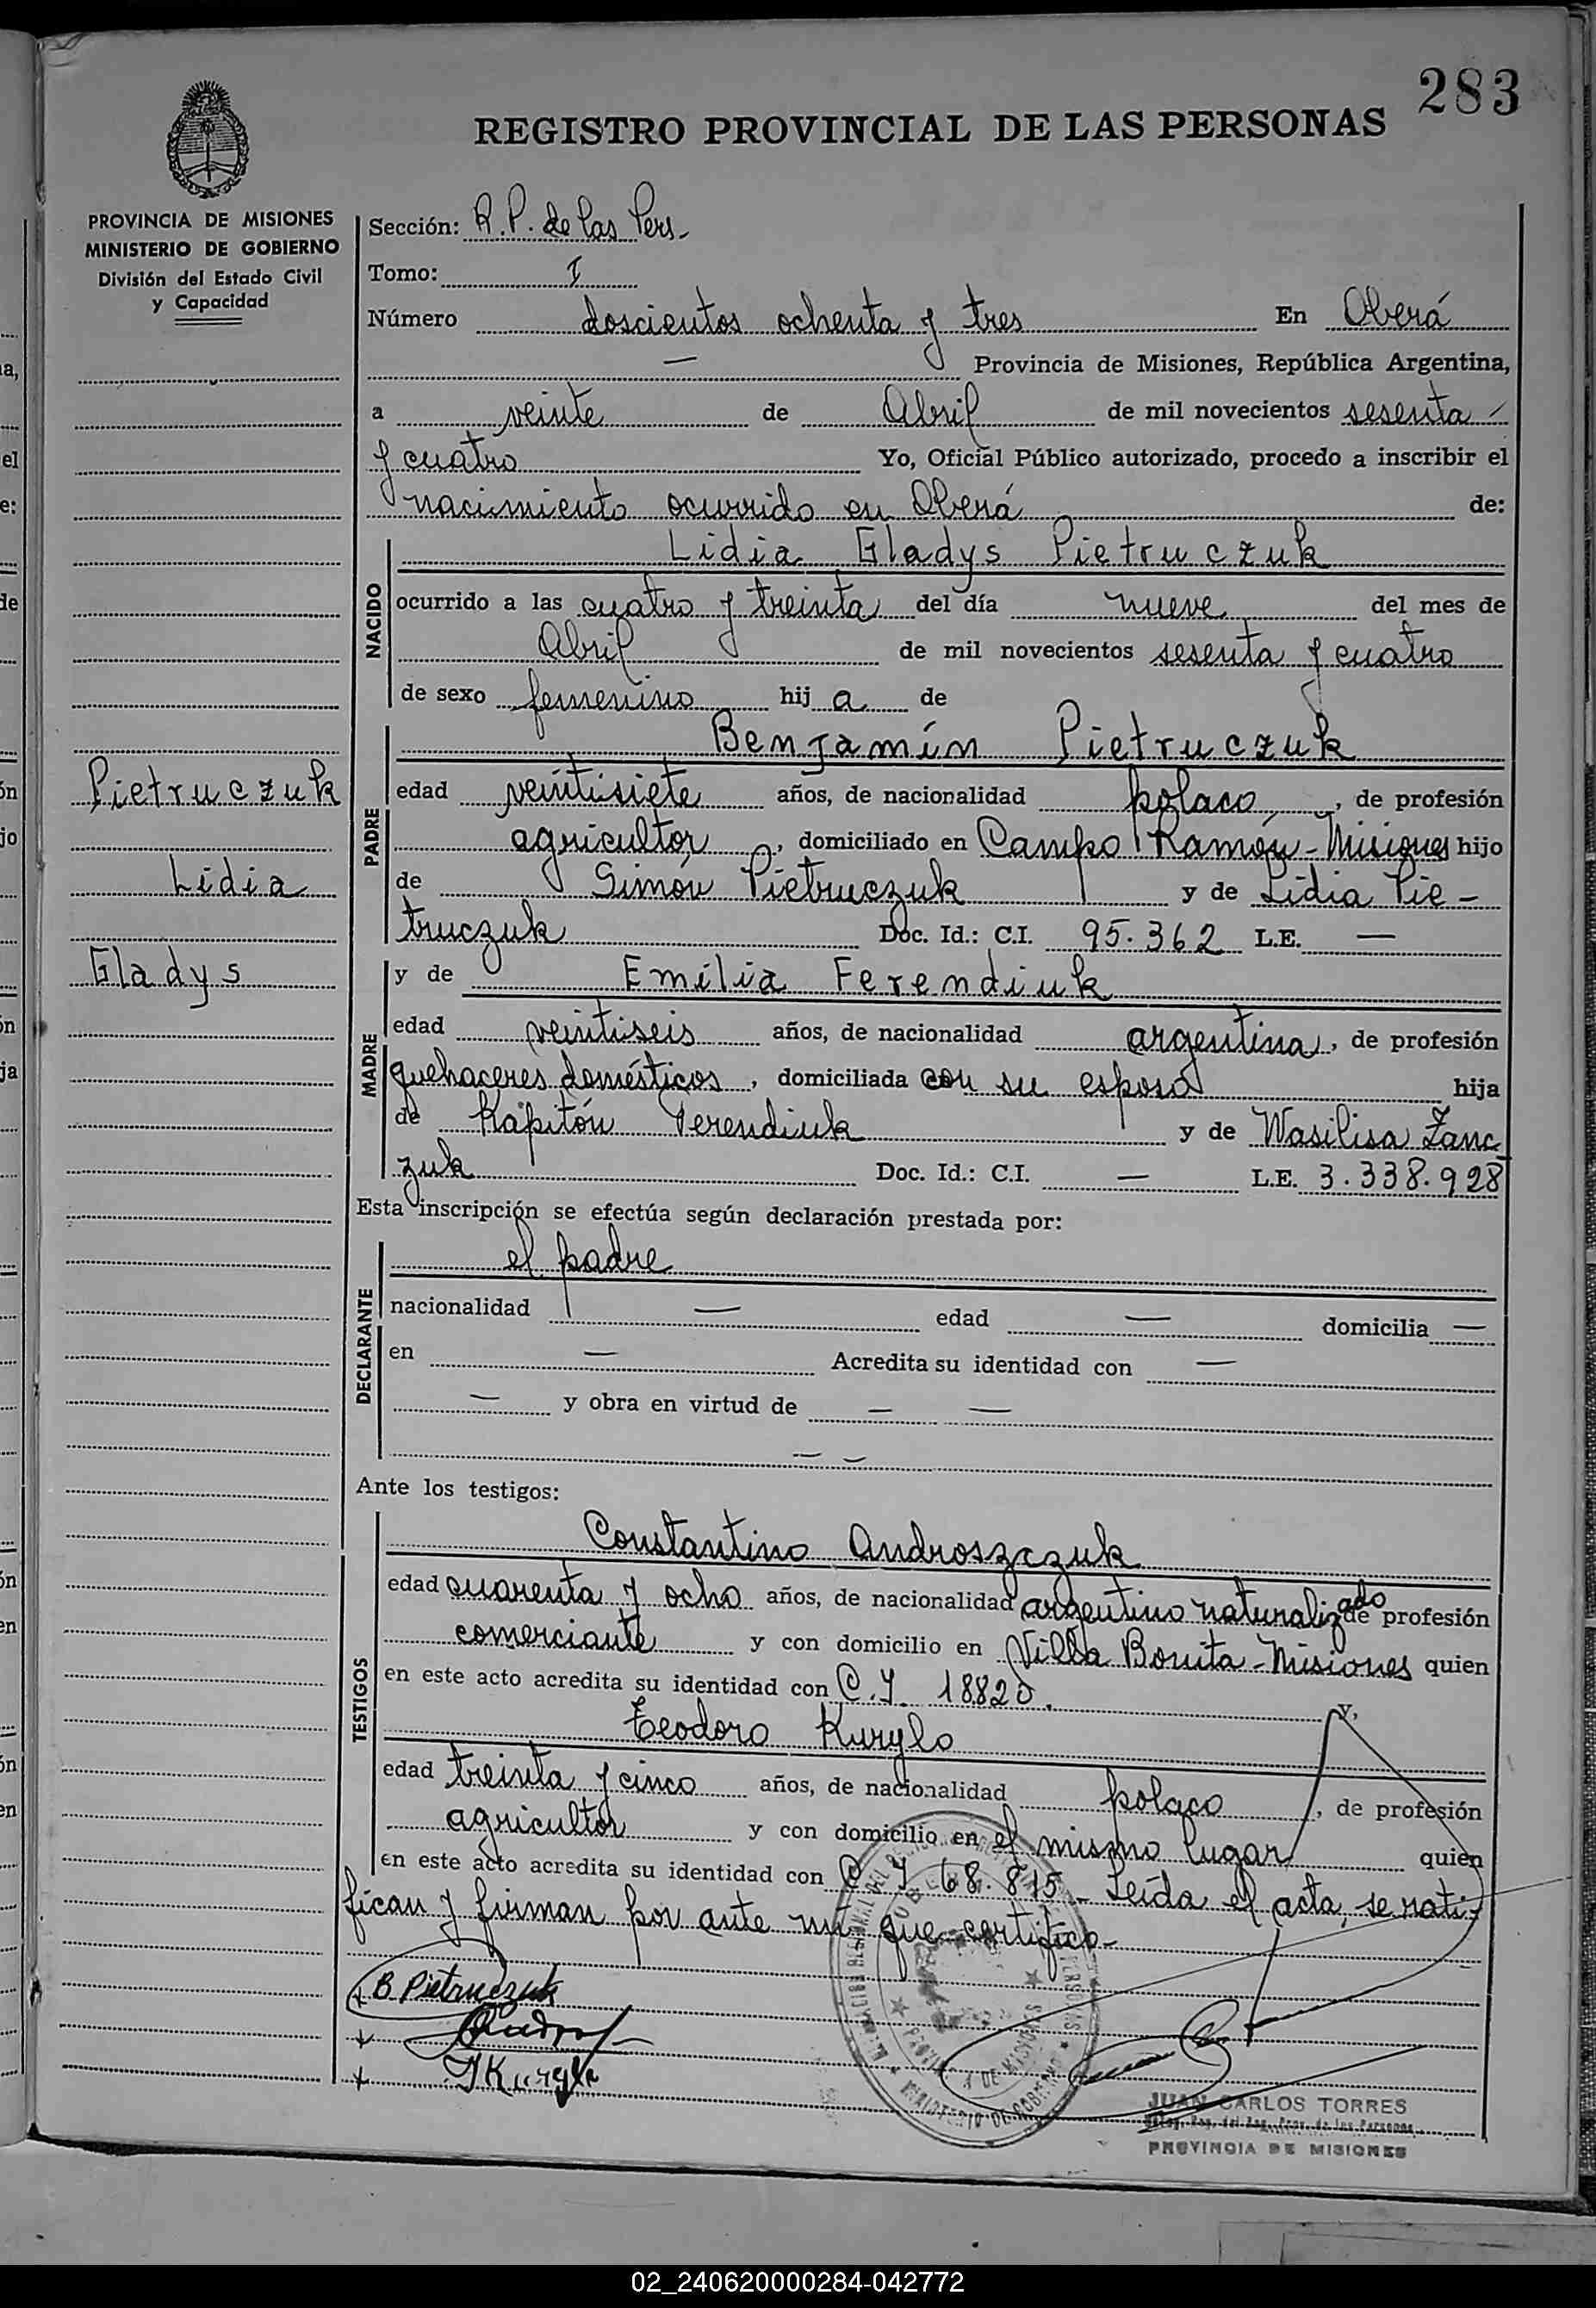 283
REGISTRO PROVINCIAL DE LAS PERSONAS
PROVINCIA DE MISIONES
MINISTERIO DE GOBIERNO
División del Estado Civil
y Capacidad
Sección: R. P. de las Pers.
Tomo: I
Número doscientos ochenta y tres En Oberá
— Provincia de Misiones, República Argentina,
a veinte de Abril de mil novecientos sesenta
y cuatro Yo, Oficial Público autorizado, procedo a inscribir el
nacimiento ocurrido en Oberá de:
NACIDO
Lidia Gladys Pietruczuk
ocurrido a las cuatro y treinta del día nueve del mes de
Abril de mil novecientos sesenta y cuatro
de sexo femenino hij a de
PADRE
Benjamín Pietruczuk
edad veintisiete años, de nacionalidad polaco, de profesión
agricultor, domiciliado en Campo Ramón - Misiones hijo
de Simón Pietruczuk y de Lidia Pie-
truczuk Doc. Id.: C.I. 95.362 L.E. —
Pietruczuk
Lidia
Gladys
MADRE
y de Emilia Ferendiuk
edad veintiseis años, de nacionalidad argentina, de profesión
quehaceres domésticos, domiciliada con su esposo hija
de Kapitón Ferendiuk y de Wasilisa Zanc
zuk Doc. Id.: C.I. — L.E. 3.338.928
Esta inscripción se efectúa según declaración prestada por:
DECLARANTE
el padre
nacionalidad — edad — domicilia —
en — Acredita su identidad con —
— y obra en virtud de — —
— —
Ante los testigos:
TESTIGOS
Constantino Androszczuk
edad cuarenta y ocho años, de nacionalidad argentino naturalizado de profesión
comerciante y con domicilio en Villa Bonita - Misiones quien
en este acto acredita su identidad con C. I. 18820. y,
Teodoro Kurylo
edad treinta y cinco años, de nacionalidad polaco, de profesión
agricultor y con domicilio en el mismo lugar quien
en este acto acredita su identidad con C I 68.815 - Leída el acta, se rati-
fican y firman por ante mi que certifico -
x B. Pietruczuk
x
x T Kurylo
JUAN CARLOS TORRES
PROVINCIA DE MISIONES
02_240620000284-042772